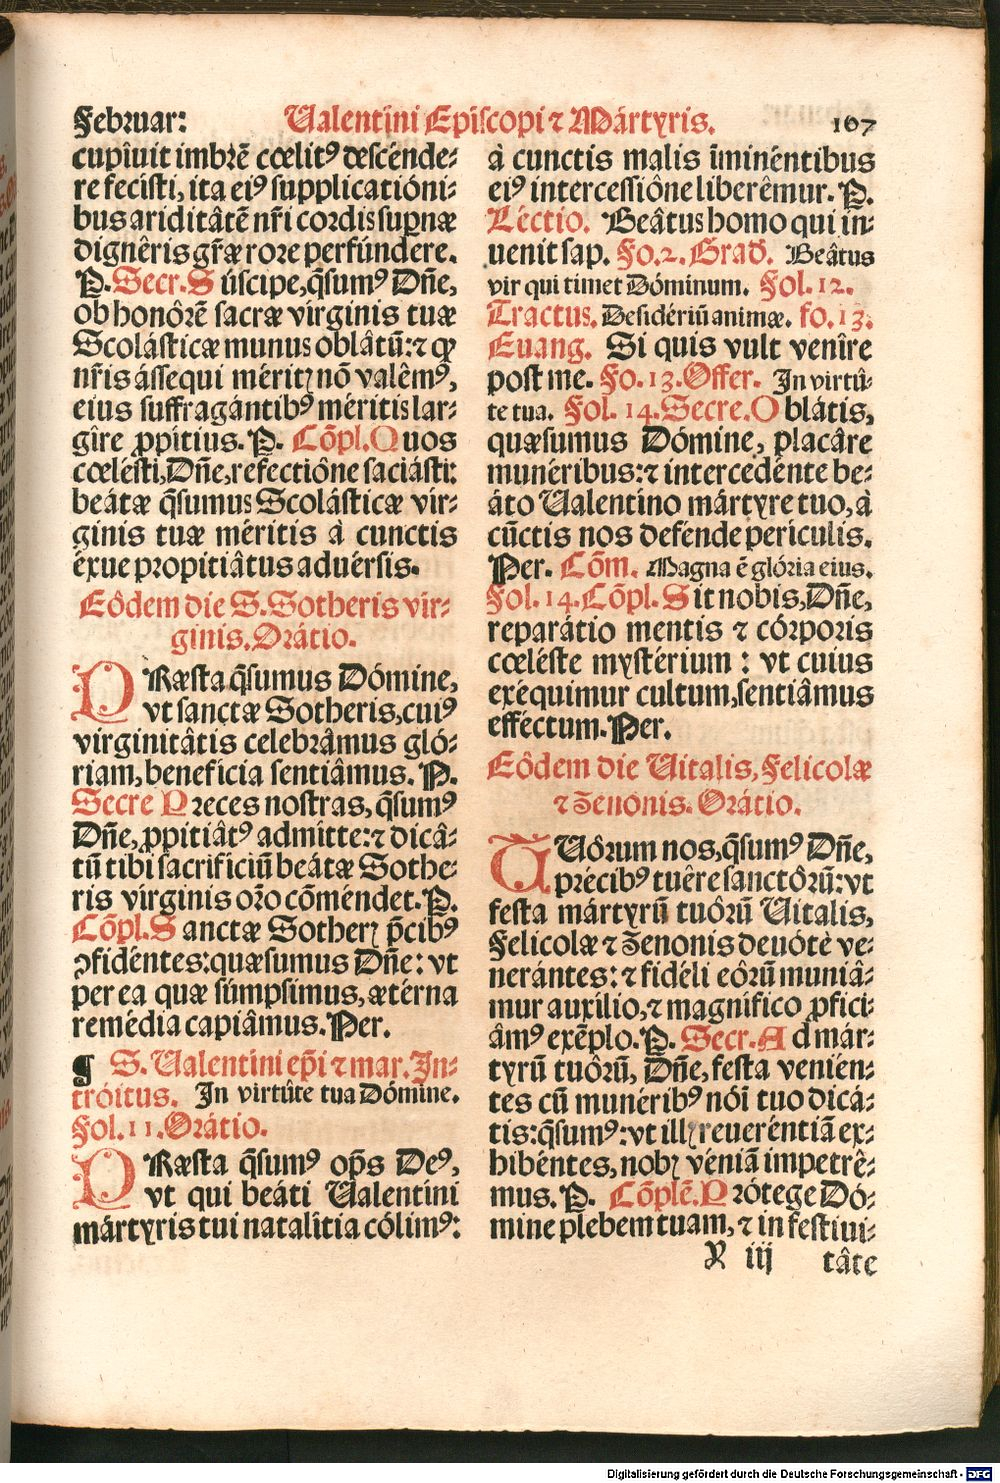 Februar: Ualentini Episcopi ⁊ Mártyris. 167
cupîuit imbrẽ cœlitꝰ descende⸗
re fecisti, ita eiꝰ supplicatióni⸗
bus ariditâtẽ nr̃i cordis sup̱næ
dignêris gr̃æ rore perfúndere.
P. Secr. S úscipe, q̃sumꝰ Dñe,
ob honôrẽ sacræ vírginis tuæ
Scolásticæ munus oblâtũ: ⁊ qꝫ
nr̃is ássequi méritꝭ nõ valêmꝰ,
eius suffragántibꝰ méritis lar⸗
gîre ꝓpítius. P. Cõpl. Q uos
cœlésti, Dñe, refectiône saciásti:
beátæ q̃sumus Scolásticæ vír⸗
ginis tuæ méritis à cunctis
éxue propitiâtus aduérsis.
Eôdem die S. Sotheris vír⸗
ginis. Orátio.
PRæsta q̃sumus Dómine,
vt sanctæ Sotheris, cuiꝰ
virginitâtis celebrâmus gló⸗
riam, beneficia sentiâmus. P.
Secre P reces nostras, q̃sumꝰ
Dñe, ꝓpitiâtꝰ admitte: ⁊ dicâ⸗
tũ tibi sacrificiũ beátæ Sothe⸗
ris vírginis or̃o cõméndet. P.
Cõpl. S anctæ Sotherꝭ p̃cibꝰ
ꝯfidéntes: quæsumus Dñe: vt
per ea quæ súmpsimus, ætérna
remédia capiâmus. Per.
¶ S. Ualentini ep̃i ⁊ mar. In⸗
tróitus. In virtûte tua Dómine.
Fol. 11. Orátio.
PRæsta q̃sumꝰ op̃s Deꝰ,
vt qui beáti Ualentíni
mártyris tui natalítia cólimꝰ:
à cunctis malis ĩminéntibus
eiꝰ intercessiône liberêmur. P.
Léctio. Beâtus homo qui in⸗
uenit sap. Fo. 2. Grad. Beâtus
vir qui timet Dóminum. Fol. 12.
Tractus. Desidériũ animæ. fo. 13.
Euang. Si quis vult venîre
post me. Fo. 13. Offer. In virtû⸗
te tua. Fol. 14. Secre. O blátis,
quæsumus Dómine, placâre
munéribus: ⁊ intercedénte be⸗
áto Ualentino mártyre tuo, à
cũctis nos defénde perículis.
Per. Cõm. Magna ẽ glória eius.
Fol. 14. Cõpl. S it nobis, Dñe,
reparátio mentis ⁊ córporis
cœléste mystérium: vt cuius
exéquimur cultum, sentiâmus
efféctum. Per.
Eôdem die Uitalis, Felicolæ
⁊ Zenónis. Orátio.
TUôrum nos, q̃sumꝰ Dñe,
précibꝰ tuêre sanctôrũ: vt
festa mártyrũ tuôrũ Uitalis,
Felicolæ ⁊ Zenonis deuótè ve⸗
nerántes: ⁊ fidéli eôrũ muniâ⸗
mur auxílio, ⁊ magnífico ꝓfici⸗
âmꝰ exẽplo. P. Secr. A d már⸗
tyrũ tuôrũ, Dñe, festa venien⸗
tes cũ munéribꝰ nói tuo dicá⸗
tis: q̃sumꝰ: vt illꝭ reueréntiã ex⸗
hibéntes, nobꝭ véniã impetrê⸗
mus. P. Cõplẽ. P rótege Dó⸗
mine plebem tuam, ⁊ in festiui⸗
X iij tâte
Digitalisierung gefördert durch die Deutsche Forschungsgemeinschaft - DFG